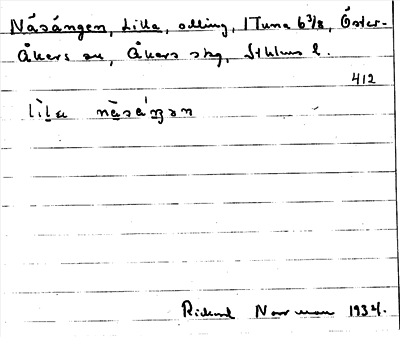 Näsängen, Lilla, odling, 1 Tuna 6 3/8, Öster-
Åkers sn, Åkers skg, Sthlms l.
412
lìla nä̀sáŋən
Rickard Norrman 1934.